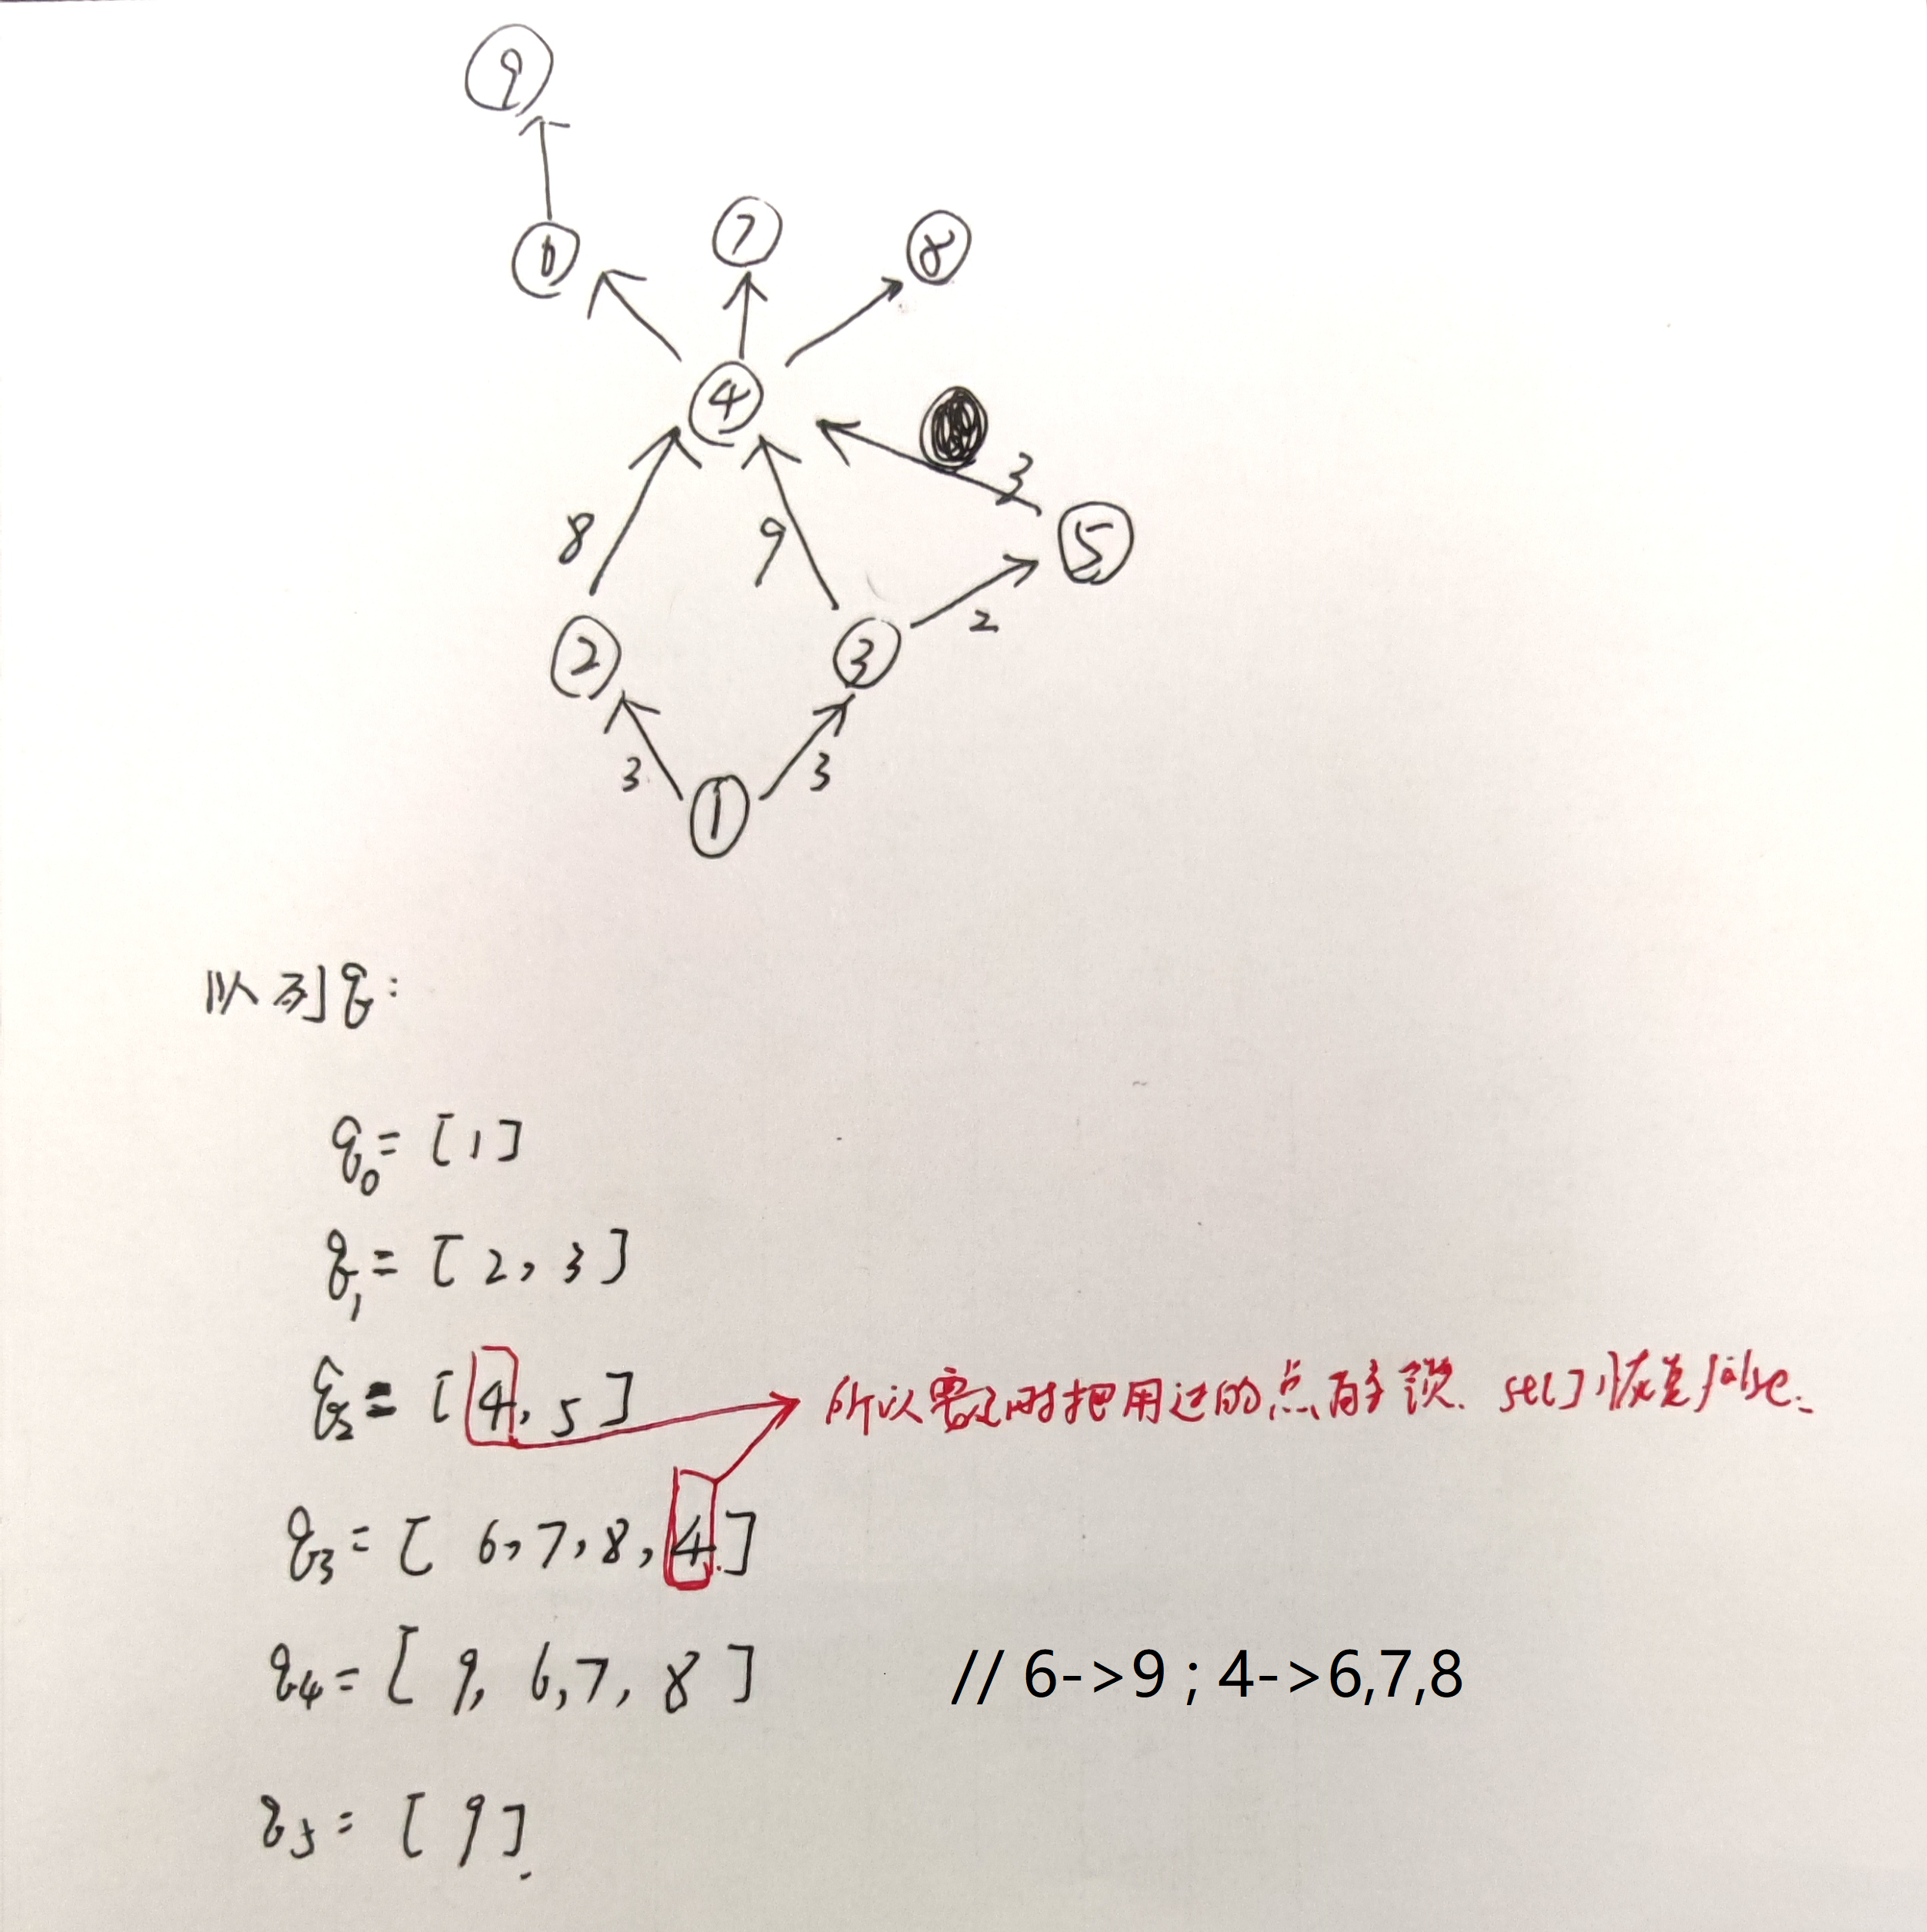 9
6 7 8
4
3
8 9 5
2 3 2
3 3
1
队列q:
q0= [1]
q1= [2, 3]
q2= [4, 5] 所以需及时把用过的点 st[]恢复false.
q3= [ 6,7,8,4]
q4= [ 9, 6,7, 8 ] // 6->9 ; 4->6,7,8
q5= [ 9].